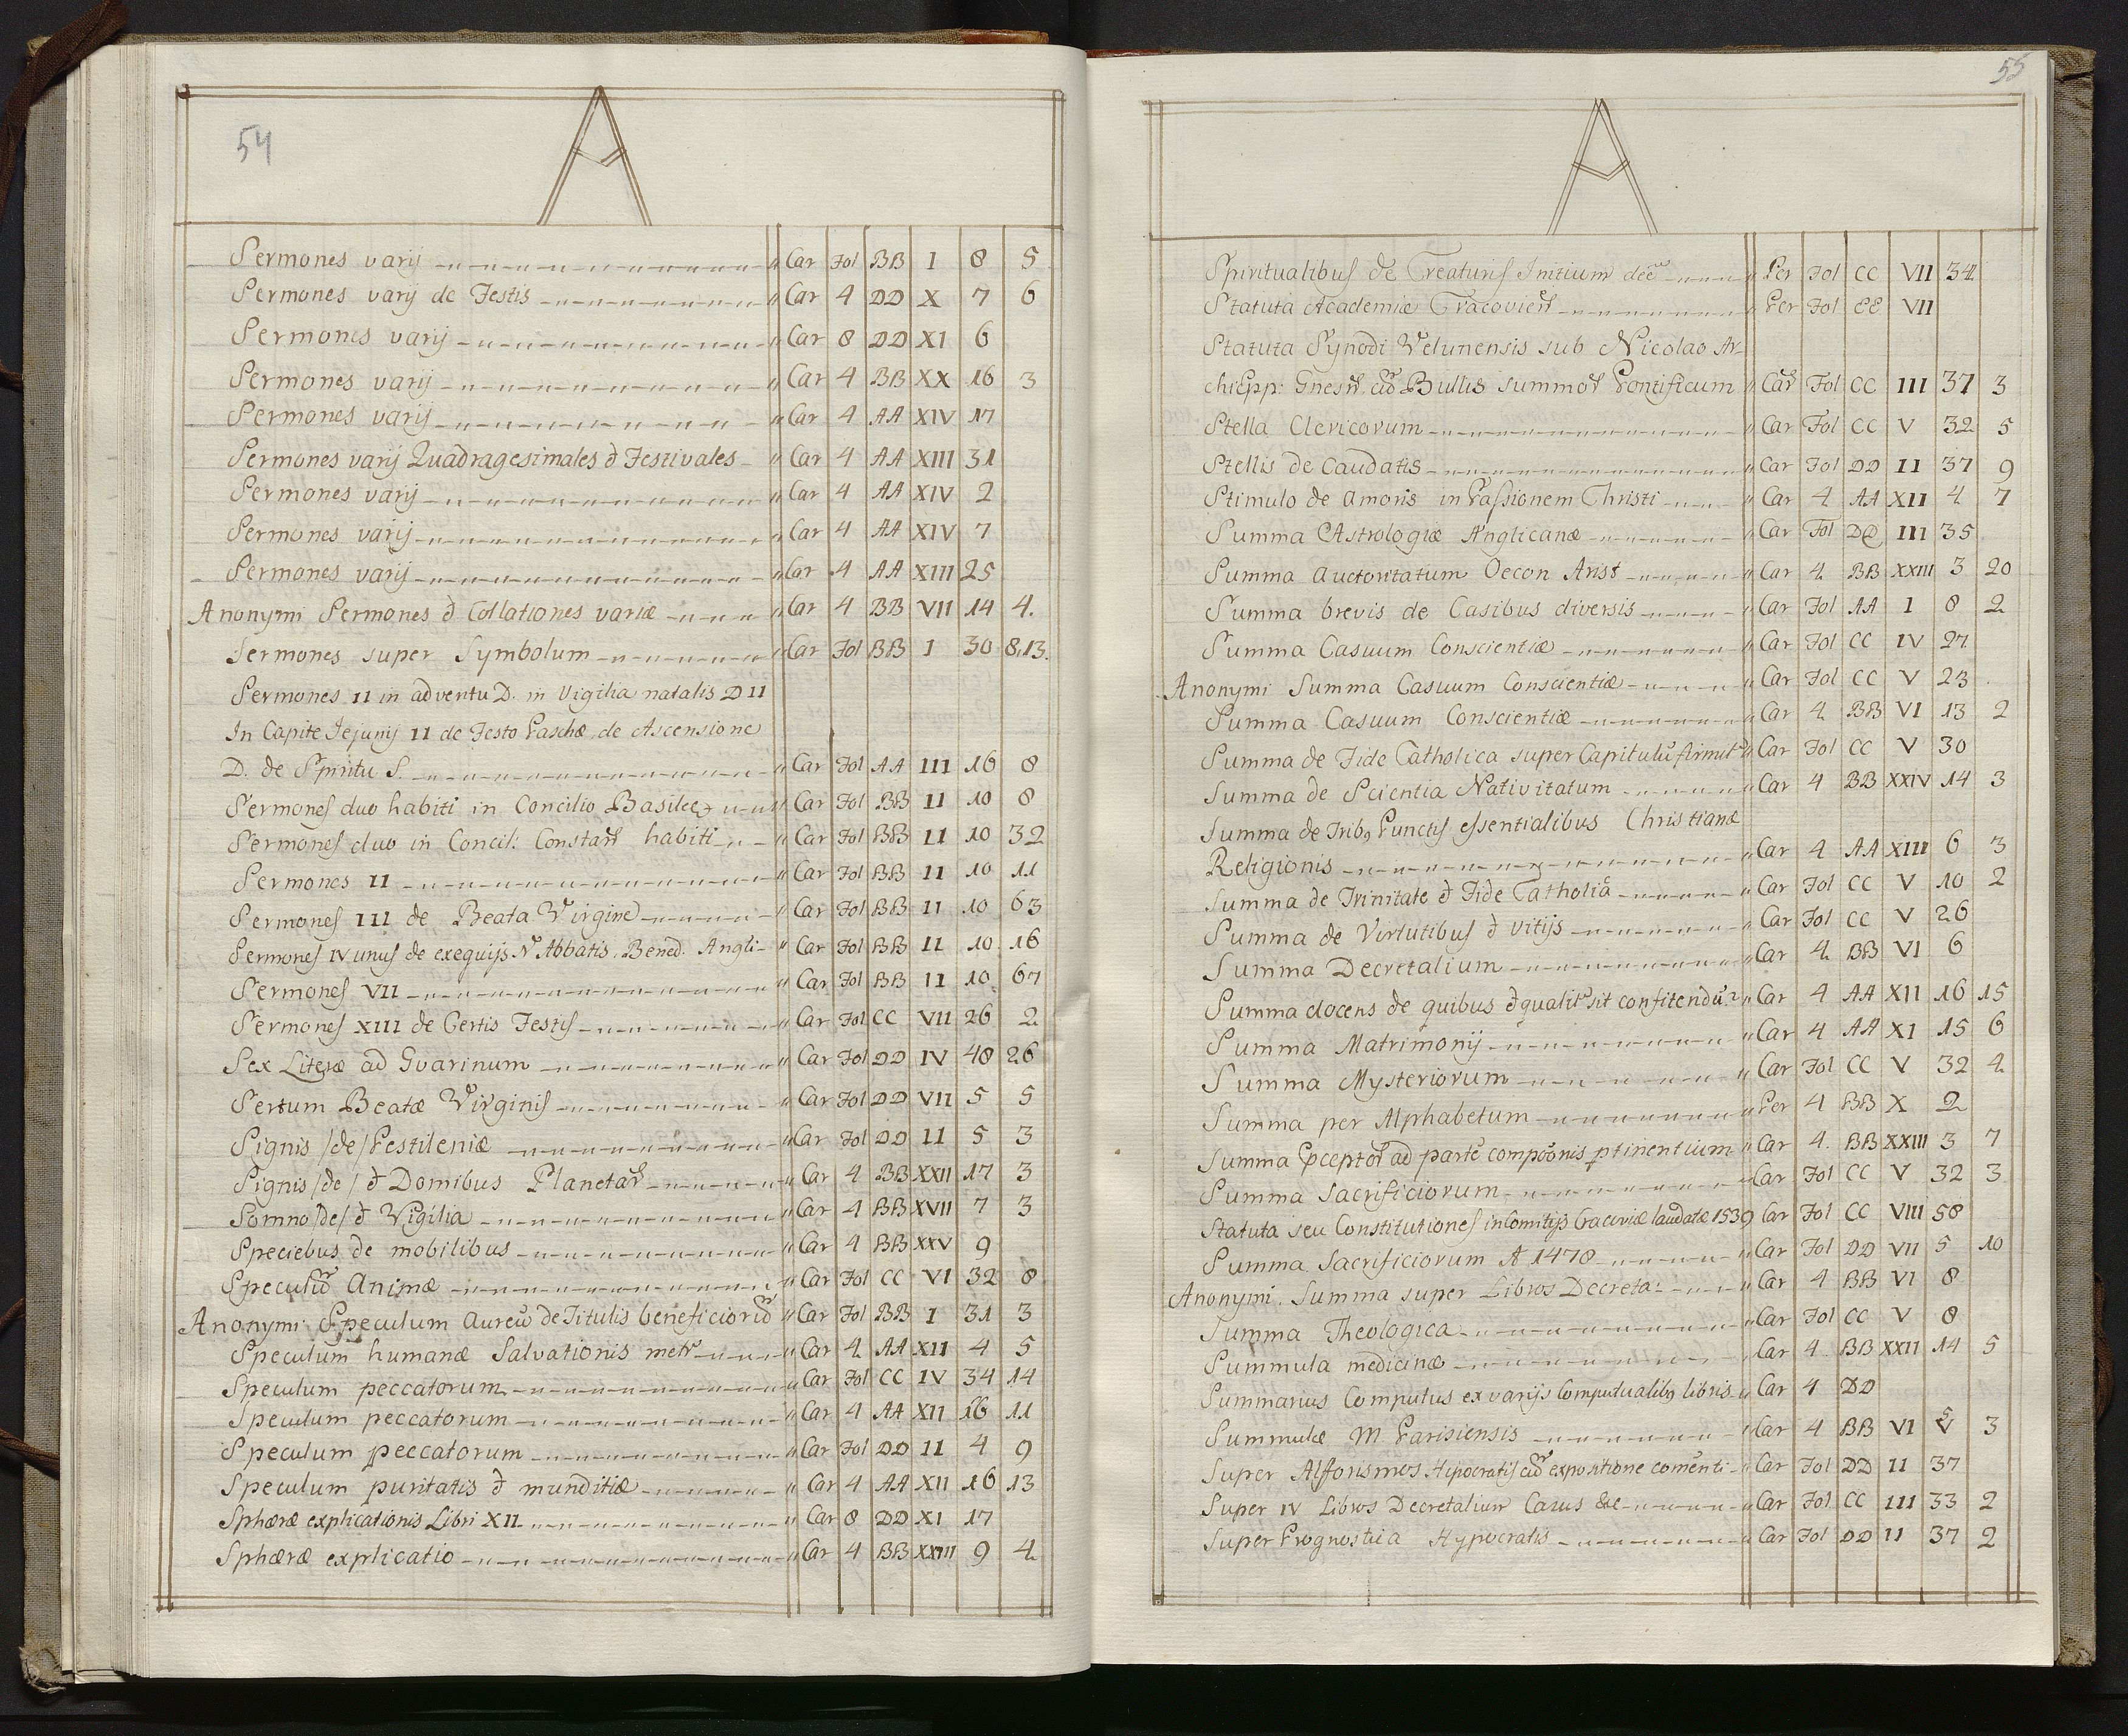 54
A
Sermones varij " Car Fol BB I 8 5
Sermones varij de Festis " Car 4 DD X 7 6
Sermones varij " Car 8 DD XI 6
Sermones varij " Car 4 BB XX 16 3
Sermones varij " Car 4 AA XIV 17
Sermones varij Quadragesimales & Festivales " Car 4 AA XIII 31
Sermones varij " Car 4 AA XIV 2
Sermones varij " Car 4 AA XIV 7
Sermones varij " Car 4 AA XIII 25
Anonymi Sermones & Collationes variæ " Car 4 BB VII 14 4.
Sermones super Symbolum " Car Fol BB I 30 8.13.
Sermones II in adventu D. in Vigilia natalis D II
In Capite Jejunij II de Festo Paschæ, de Ascensione
D. de Spiritu S. " Car Fol AA III 16 8
Sermones duo habiti in Concilio Basilee " Car Fol BB II 10 8
Sermones duo in Concil: Constan habiti " Car Fol BB II 10 32
Sermones II " Car Fol BB II 10 11
Sermones III de Beata Virgine " Car Fol BB II 10 63
Sermones IV unus de exequijs N Abbatis, Bened. Angli " Car Fol BB II 10 16
Sermones VII " Car Fol BB II 10 67
Sermones XIII de Certis Festis " Car Fol CC VII 26 2
Sex Literæ ad Gvarinum " Car Fol DD IV 48 26
Sertum Beatæ Virginis " Car Fol DD VII 5 5
Signis /de/ Pestileniæ " Car Fol DD II 5 3
Signis /de/ & Domibus Planetar " Car 4 BB XXII 17 3
Somno /de/ & Vigilia " Car 4 BB XVII 7 3
Speciebus de mobilibus " Car 4 BB XXV 9
Speculũ Animæ " Car Fol CC VI 32 8
Anonymi Speculum Aureũ de Titulis beneficiorũ " Car Fol BB I 31 3
Speculum humanæ Salvationis metr " Car 4 AA XII 4 5
Speculum peccatorum " Car Fol CC IV 34 14
Speculum peccatorum " Car 4 AA XII 16 11
Speculum peccatorum " Car Fol DD II 4 9
Speculum puritatis & munditiæ " Car 4 AA XII 16 13
Sphæræ explicationis Libri XII " Car 8 DD XI 17
Sphæræ explicatio " Car 4 BB XXIII 9 4
55
A
Spiritualibus de Creaturis Initium deẽ " Per Fol CC VII 34
Statuta Academiæ Cracovien " Per Fol EE VII
Statuta Synodi Velunensis sub Nicolao Ar-
chiEpp: Gnesn cũ Bullis summor Pontificum " Car Fol CC III 37 3
Stella Clericorum " Car Fol CC V 32 5
Stellis de Caudatis " Car Fol DD II 37 9
Stimulo de amoris in Passionem Christi " Car 4 AA XII 4 7
Summa Astrologiæ Anglicanæ " Car Fol DD III 35
Summa Auctoritatum Oecon Arist " Car 4 BB XXIII 3 20
Summa brevis de Casibus diversis " Car Fol AA I 8 2
Summa Casuum Conscientiæ " Car Fol CC IV 27
Anonymi Summa Casuum Conscientiæ " Car Fol CC V 23
Summa Casuum Conscientiæ " Car 4 BB VI 13 2
Summa de Fide Catholica super Capitulũ firmit " Car Fol CC V 30
Summa de Scientia Nativitatum " Car 4 BB XXIV 14 3
Summa de Trib9 Punctis essentialibus Christianæ
Religionis " Car 4 AA XIII 6 3
Summa de Trinitate & Fide Catholiã " Car Fol CC V 10 2
Summa de Virtutibus & Vitijs " Car Fol CC V 26
Summa Decretalium " Car 4 BB VI 6
Summa docens de quibus & qualit sit confitendũ " Car 4 AA XII 16 15
Summa Matrimonij " Car 4 AA XI 15 6
Summa Mysteriorum " Car Fol CC V 32 4
Summa per Alphabetum " Per 4 BB X 2
Summa pceptor ad partẽ compõnis ptinentium " Car 4. BB XXIII 3 7
Summa Sacrificiorum " Car Fol CC V 32 3
Statuta seu Constitutiones in Comitijs Cracoviæ laudatæ 1539 Car Fol CC VIII 58
Summa Sacrificiorum A 1478 " Car Fol DD VII 5 10
Anonymi. Summa super Libros Decreta: " Car 4 BB VI 8
Summa Theologica " Car Fol CC V 8
Summula medicinæ " Car 4 BB XXII 14 5
Summarius Computus ex varijs Computualib9 libris " Car 4 DD
Summulæ M Parisiensis " Car 4 BB VI 5 3
Super Alforismos Hipocratis cũ expositione comẽnti " Car Fol DD II 37
Super IV Libros Decretalium Casus &c " Car Fol CC III 33 2
Super Prognostica Hypocratis " Car Fol DD II 37 2